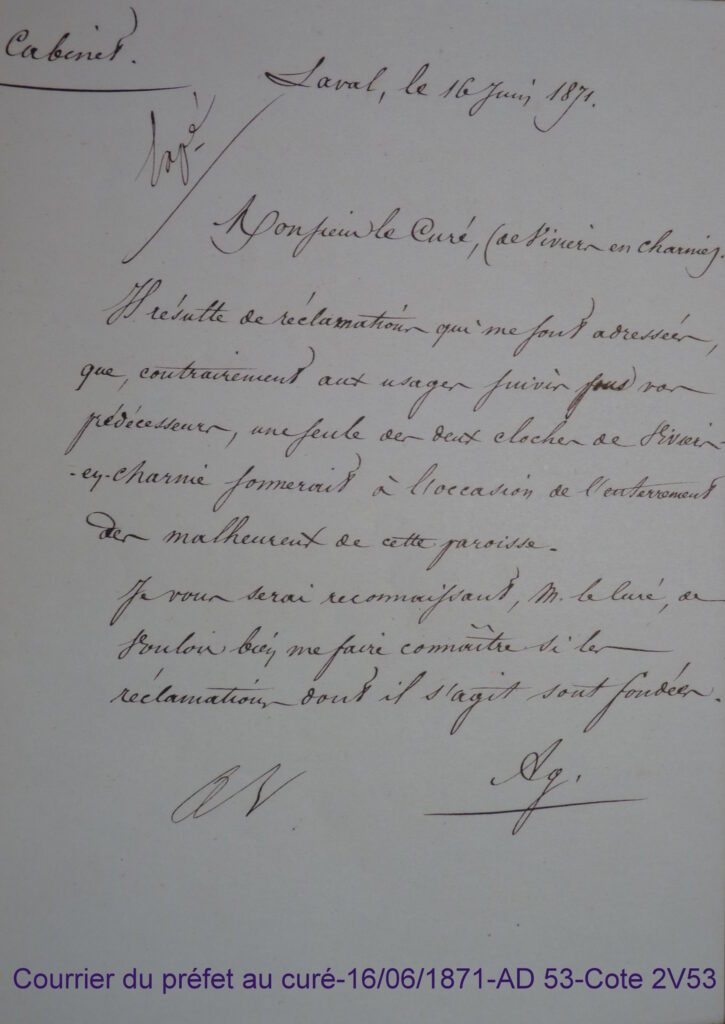 Cabinet.
Laval, le 16 Juin 1871.
Monsieur le Curé, (de Viviers en charnie).
Il résulte de réclamations qui me sont adressées,
que, contrairement aux usages suivis sous vos
prédécesseurs, une seule des deux cloches de Viviers-
-en-charnie sonnerait à l'occasion de l'enterrement
des malheureux de cette paroisse.
Je vous serai reconnaissant, M. le Curé, de
vouloir bien me faire connaître si les
réclamations dont il s'agit sont fondées.
Ag.
Courrier du préfet au curé-16/06/1871-AD 53-Cote 2V53